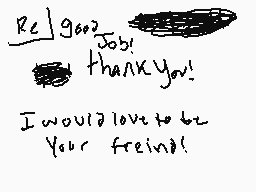 Re good
Job!
thank you!
I would love to be
your freind!